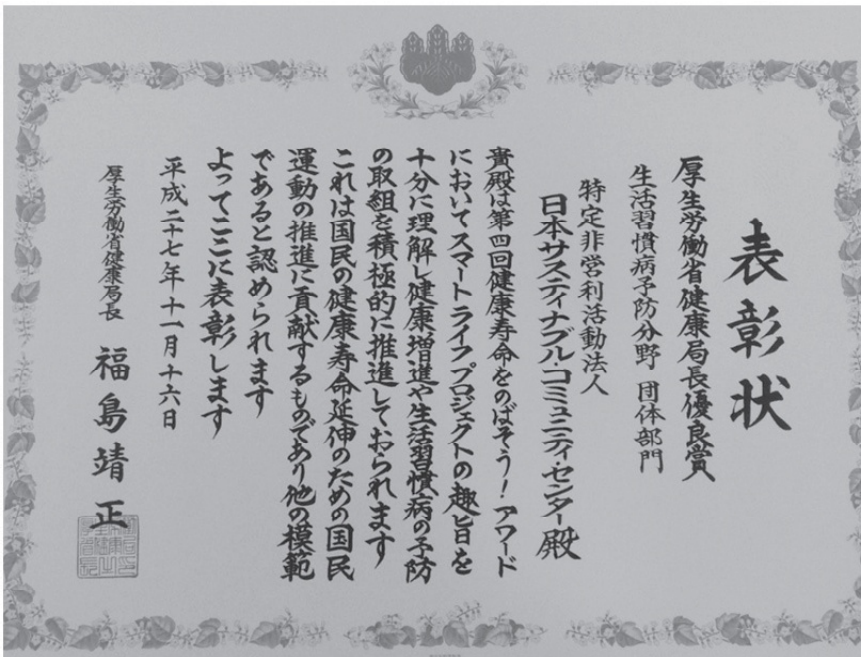 表彰状
厚生労働省健康局長優良賞
生活習慣病予防分野 団体部門
特定非営利活動法人
日本サスティナブル・コミュニティ・センター殿
貴殿は第四回健康寿命をのばそう!アワード
においてスマートライフプロジェクトの趣旨を
十分に理解し健康増進や生活習慣病の予防
の取組を積極的に推進しておられます
これは国民の健康寿命延伸のための国民
運動の推進に貢献するものであり他の模範
であると認められます
よってここに表彰します
平成二十七年十一月十六日
厚生労働省健康局長 福島靖正